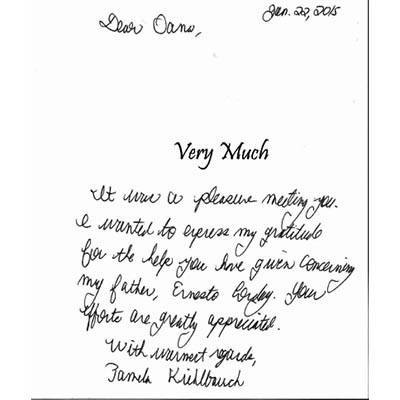 Jan. 22, 2015
Dear Oana,
Very Much
It was a pleasure meeting you.
I wanted to express my gratitude
for the help you have given concerning
my father, Ernesto. Your
efforts are greatly appreciated.
With warmest regards,
Pamela Kiehlbauch